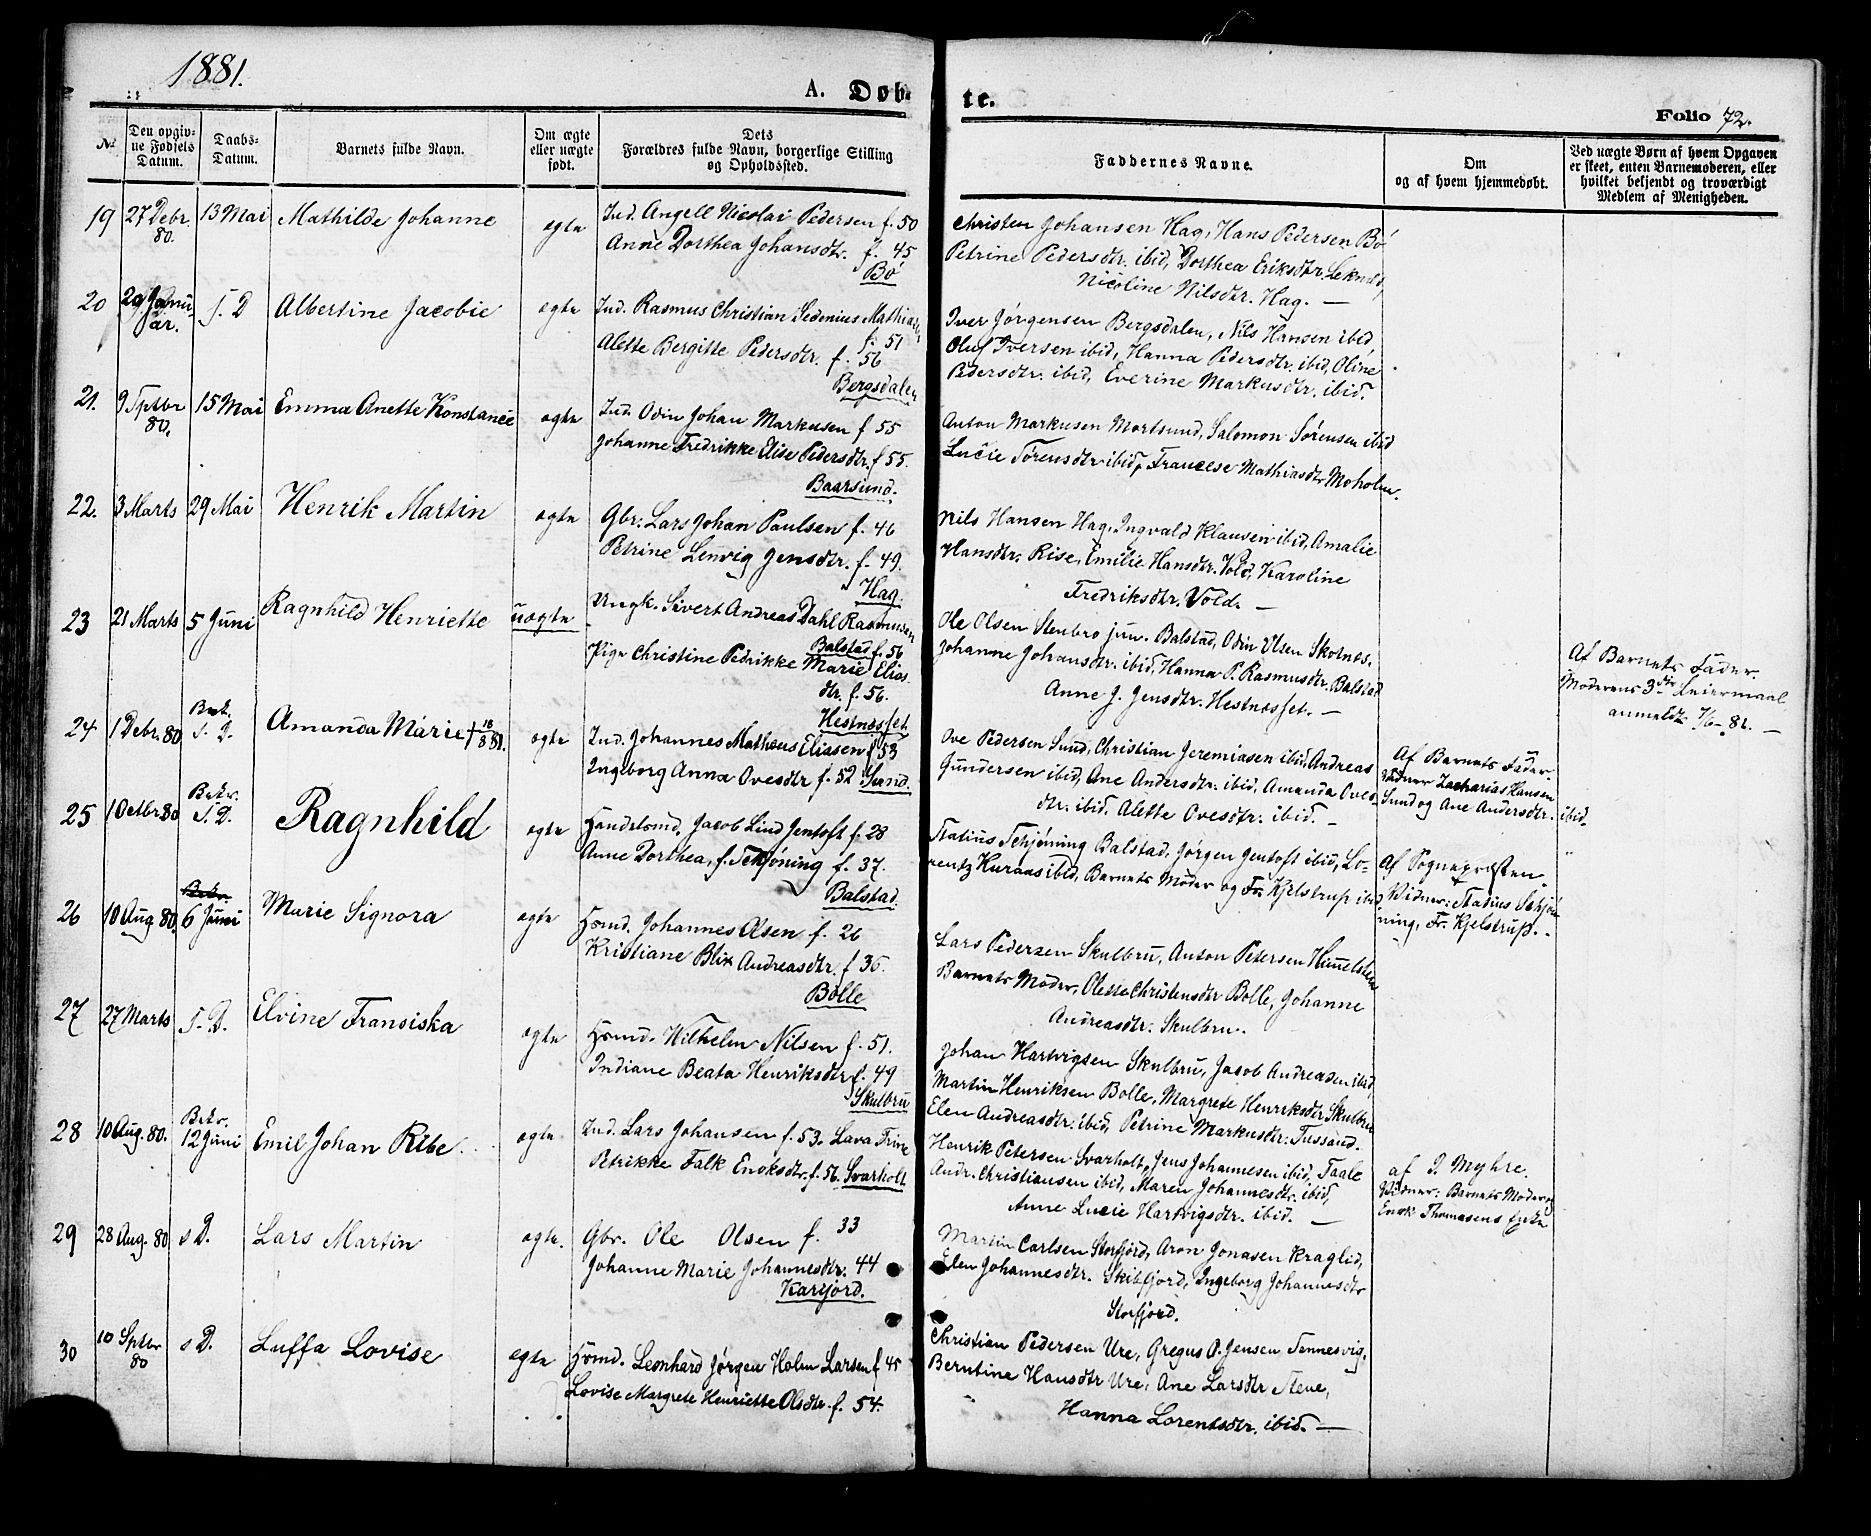 1881.
A. Døbte.
Folio 72.
№
Den opgivne Fødsels Datum.
Daabs-Datum.
Barnets fulde Navn.
Om ægte eller uægte født.
Dets Forældres fulde Navn, borgerlige Stilling og Opholdssted.
Faddernes Navne.
Om og af hvem hjemmedøbt.
Ved uægte Børn af hvem Opgaven er skeet, enten Barnemoderen, eller hvilket bekjendt og troværdigt Medlem af Menigheden.
19 27 Debr. 80. 13 Mai Mathilde Johanne ægte
Ind. Angell Nicolai Pedersen f. 50
Anne Dorthea Johansdtr. f. 45
Bø
Christen Johansen Hag, Hans Pedersen Bø
Petrine Pedersdtr. ibid, Dorthea Eriksdtr. Leknæs,
Nicoline Nilsdtr. Hag. —
20 29 Januar. s. D Albertine Jacobie ægte
Ind. Rasmus Christian Sedenius Mathias
f. 51
Alette Bergitte Pedersdtr. f. 56
Bergsdalen
Iver Jørgensen Bergsdalen, Nils Hansen ibid
Oluf Iversen ibid, Hanna Pedersdtr. ibid, Oline
Pedersdtr. ibid, Everine Markusdtr. ibid.
21. 9 Sptbr 80. 15 Mai Emma Anette Konstance ægte
Ind. Odin Johan Markusen f 55
Johanne Fredrikke Elise Pedersdtr. f 55.
Baarsund.
Anton Markusen Mortsund, Salomon Sørensen ibid
Lucie Sørensdtr ibid, Francese Mathiasdtr Moholm.
22. 3 Marts 29 Mai Henrik Martin ægte
Gbr. Lars Johan Paulsen f. 46
Petrine Lenvig Jensdtr. f. 49.
Hag.
Nils Hansen Hag, Ingvald Klausen ibid, Amalie
Hansdtr. Rise, Emilie Hansdtr. Vold, Karoline
Fredriksdtr. Vold. —
23 21 Marts 5 Juni Ragnhild Henriette uægte
Ungk. Sivert Andreas Dahl Rasmusen
Balstad f. 56
Pige Christine Pedrikke Marie Elias
dtr. f. 56.
Hestnæsset.
Ole Olsen Stenbro jun. Balstad, Odin Olsen Skotnæs,
Johanne Johansdtr. ibid, Hanna P. Rasmusdtr. Balstad
Anne J. Jensdtr. Hestnæsset. —
Af Barnets Fader.
Moderens 3die Leiermaal
anmeldt 7/6- 81. —
24 1 Debr. 80 Bek. s. D. Amanda Marie † 18/8 81. ægte
Ind. Johannes Matheus Eliasen f 53
Ingeborg Anna Ovesdtr f. 52 Sund.
Ove Pedersen Sund, Christian Jeremiasen ibid, Andreas
Gundersen ibid, Ane Andersdtr. ibid, Amanda Oves-
dtr. ibid, Alette Ovesdtr. ibid. —
Af Barnets Fader.
Vidner Zacharias Hansen
Sund og Ane Andersdtr. ibid.
25 1 Octbr 80 Bekr. s. D. Ragnhild ægte
Handelsmd. Jacob Lind Jentoft f. 28
Anne Dorthea, f. Schjøning f. 37.
Balstad.
Statius Schjøning Balstad, Jørgen Jentoft ibid, Lo-
rentz Kuraas ibid, Barnets Moder og Fr. Kjelstrup ibid
Af Sognepræsten.
Vidner: Statius Schjø-
ning, Fr. Kjelstrup.
26 10 Aug 80. Bekr. 6 Juni Marie Signora ægte
Hsmd. Johannes Olsen f. 26
Kristiane Blix Andreasdtr. f 36.
Bolle
Lars Pedersen Skulbru, Anton Petersen Himelsten
Barnets Moder, Olette Christensdtr Bolle, Johanne
Andreasdtr. Skulbru.
27 27 Marts s. D. Elvine Fransiska ægte
Hsmd. Wilhelm Nilsen f. 51.
Indiane Beata Henriksdtr f. 49
Skulbru
Johan Hartvigsen Skulbru, Jacob Andreasen ibid,
Martin Henriksen Bolle, Margrete Henriksdtr Skulbru
Elen Andreasdtr. ibid, Petrine Markusdtr. Tussand.
28 10 Aug. 80. Bekr. 12 Juni Emil Johan Ribe ægte
Ind. Lars Johansen f. 53. Lava Trine
Petrikke Falk Enoksdtr. f. 56. Svarholt.
Henrik Petersen Svarholt, Jens Johannesen ibid, Taale
Andr. Christiansen ibid, Maren Johannesdtr. ibid,
Anne Lucie Hartvigsdtr. ibid. —
af P. Myhre.
Vidner: Barnets Moder og
Enok Thomasens Enke
29 28 Aug. 80 s D. Lars Martin ægte.
Gbr. Ole Olsen f. 33
Johanne Marie Johannesdtr. 44
Karfjord.
Martin Carlsen Storfjord, Aron Jonasen Kraglid,
Elen Johannesdtr. Skibfjord, Ingeborg Johannesdtr
Storfjord.
30 10 Sptbr 80 s D. Luffa Lovise ægte
Hsmd. Leonhard Jørgen Holm Larsen f 45
Lovise Margrete Henriette Olsdtr. f. 54.
Christian Pedersen Ure, Gregus O. Jensen Sennesvig,
Berntine Hansdtr Ure, Ane Larsdtr Stene,
Hanna Lorentsdtr. ibid. —